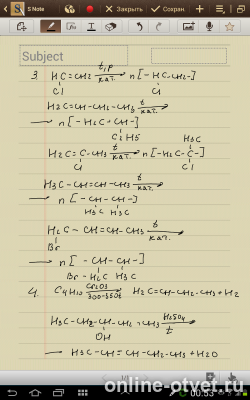 S Note
Закрыть
Сохран.
Subject
3. HC=CH2 t,p кат. n[-HC-CH2-]
Cl Cl
H2C=CH-CH2-CH3 t кат.
→ n[-H2C-CH-]
C2H5
H3C
H2C=C-CH3 t кат. n[-H2C-C-]
Cl Cl
H3C-CH=CH-CH3 t кат.
→ n[-CH-CH-]
H3C H3C
H2C-CH=CH-CH3 t кат.
Br
→ n[-CH-CH-]
Br-H2C H3C
4. C4H10 Cr2O3 300-550t H2C=CH-CH2-CH3+H2
H3C-CH2-CH-CH2-CH3 H2SO4 t
OH
→ H3C-CH=CH-CH2-CH3+H2O
00:53
online-otvet.ru